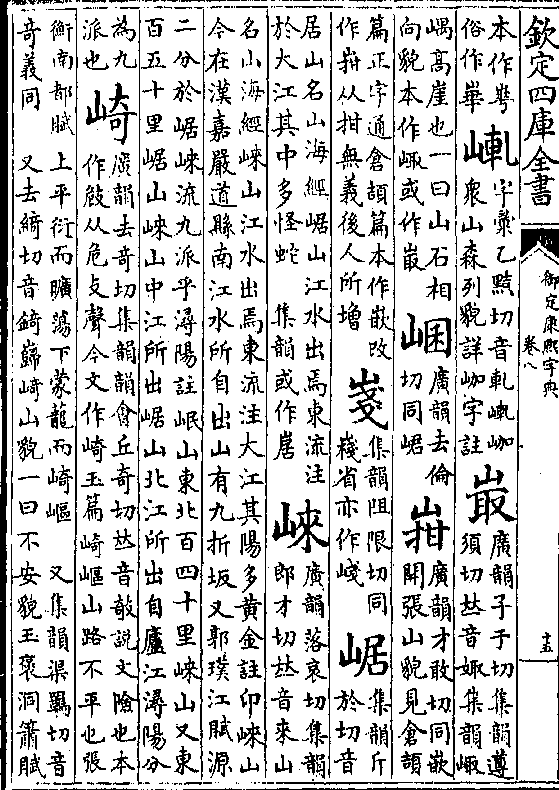 欽定四庫全書
御定康熙字典
卷八
十五
本作
俗作崋
字彙乙點切音軋
衆山森列貌詳字註
廣韻子于切集韻遵
須切𠀤音娵集韻
嵎高崖也一曰山石相
向貌本作或作
廣韻去倫
切同峮
廣韻才敢切同嵌
開張山貌見倉頡
篇正字通倉頡篇本作嵌改
作从拑無義後人所增
集韻阻限切同
棧省亦作
崌
集韻斤
於切音
居山名山海經崌山江水出焉東流注
於大江其中多怪蛇 集韻或作
崍
廣韻落哀切集韻
郎才切𠀤音來山
名山海經崍山江水出焉東流注大江其陽多黃金註卬崍山
今在漢嘉嚴道縣南江水所自出山有九折坂又郭璞江賦源
二分於崌崍流九派乎潯陽註岷山東北百四十里崍山又東
百五十里崌山崍山中江所出崌山北江所出自廬江潯陽分
為九
派也
崎
廣韻去奇切集韻韻會丘奇切𠀤音敧說文險也本
作从危支聲今文作崎玉篇崎嶇山路不平也張
衡南都賦 上平衍而曠蕩下蒙籠而崎嶇 又集韻渠羈切音
奇義同 又去綺切音錡巋崎山貌一曰不安貌王褒洞簫賦